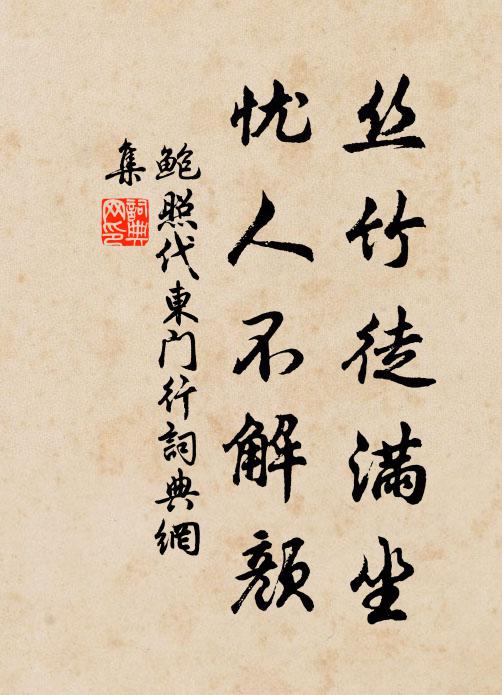 丝竹徒满坐
忧人不解颜
鲍照代東门行詞典網
集
詞典
网印